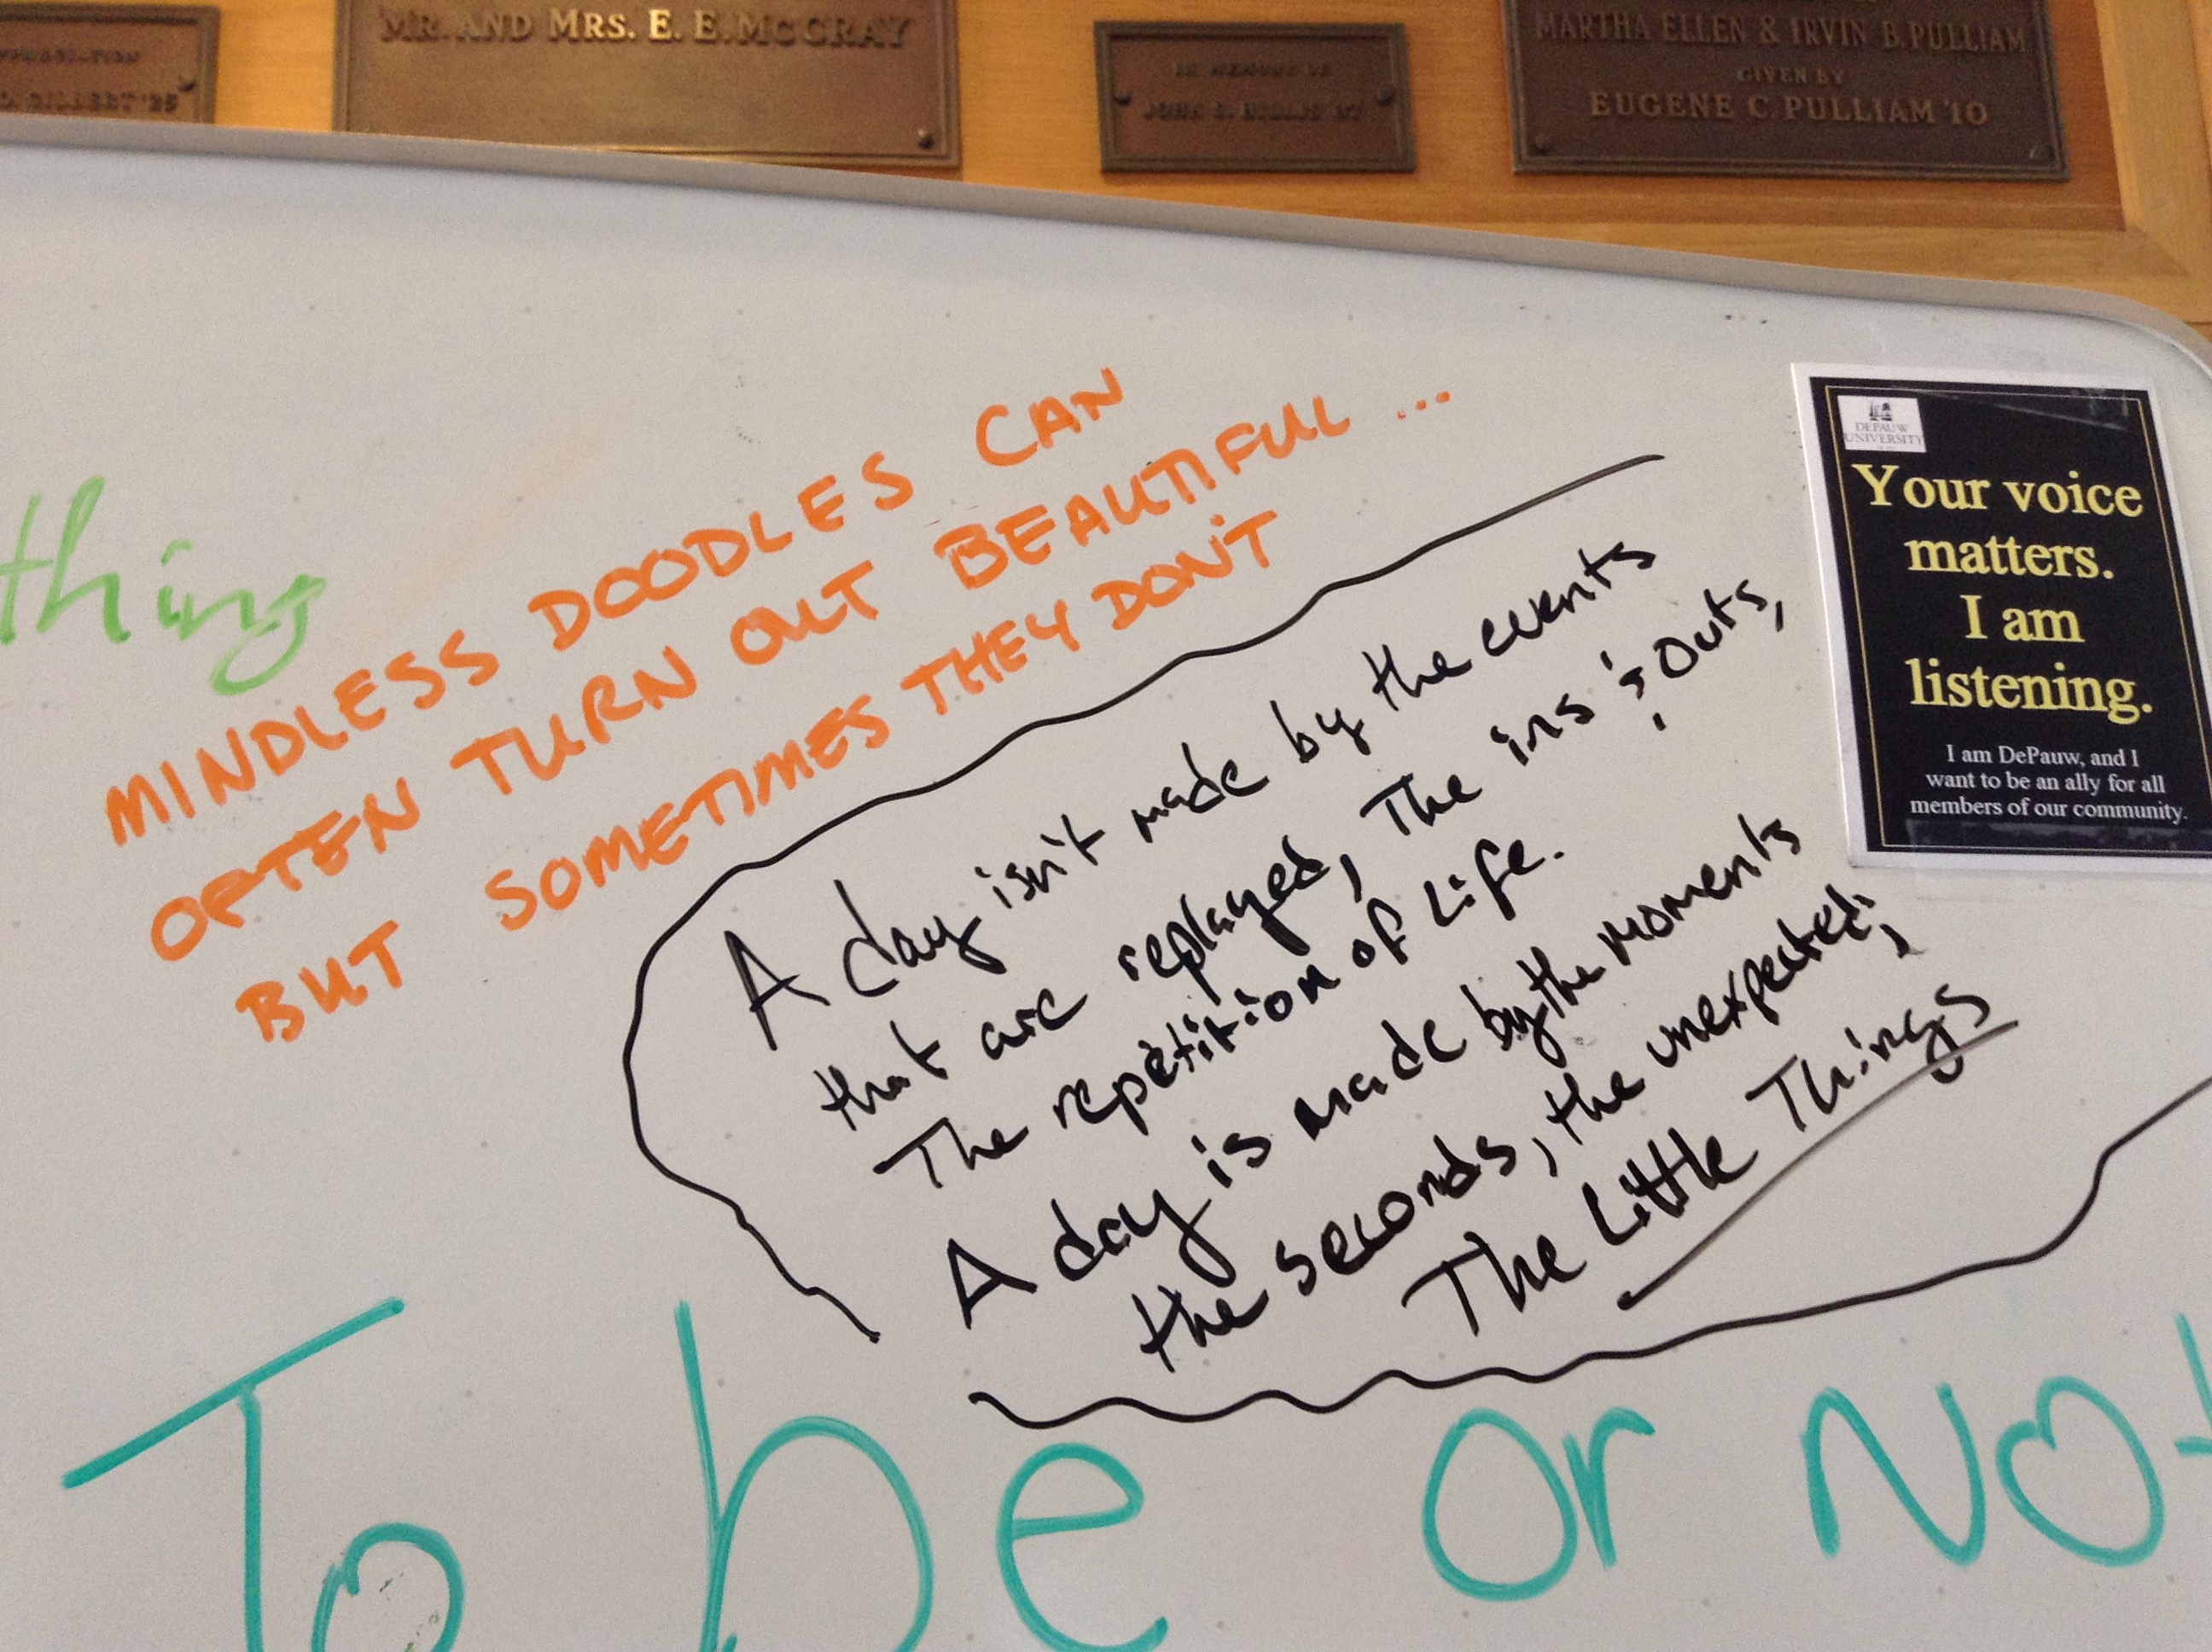 MR. AND MRS. E. E. MCCRAY
GILBERT '25
IN MEMORY OF
JOHN
MARTHA ELLEN & IRVIN B. PULLIAM
GIVEN BY
EUGENE C. PULLIAM '10
thing
MINDLESS DOODLES CAN
OFTEN TURN OUT BEAUTIFUL...
BUT SOMETIMES THEY DON'T
A day isn't made by the events
that are replayed, The ins & Outs,
The repetition of Life.
A day is made by the moments
the seconds, the unexpected,
The Little Things
DEPAUW
UNIVERSITY
Your voice
matters.
I am
listening.
I am DePauw, and I
want to be an ally for all
members of our community.
To be or Not